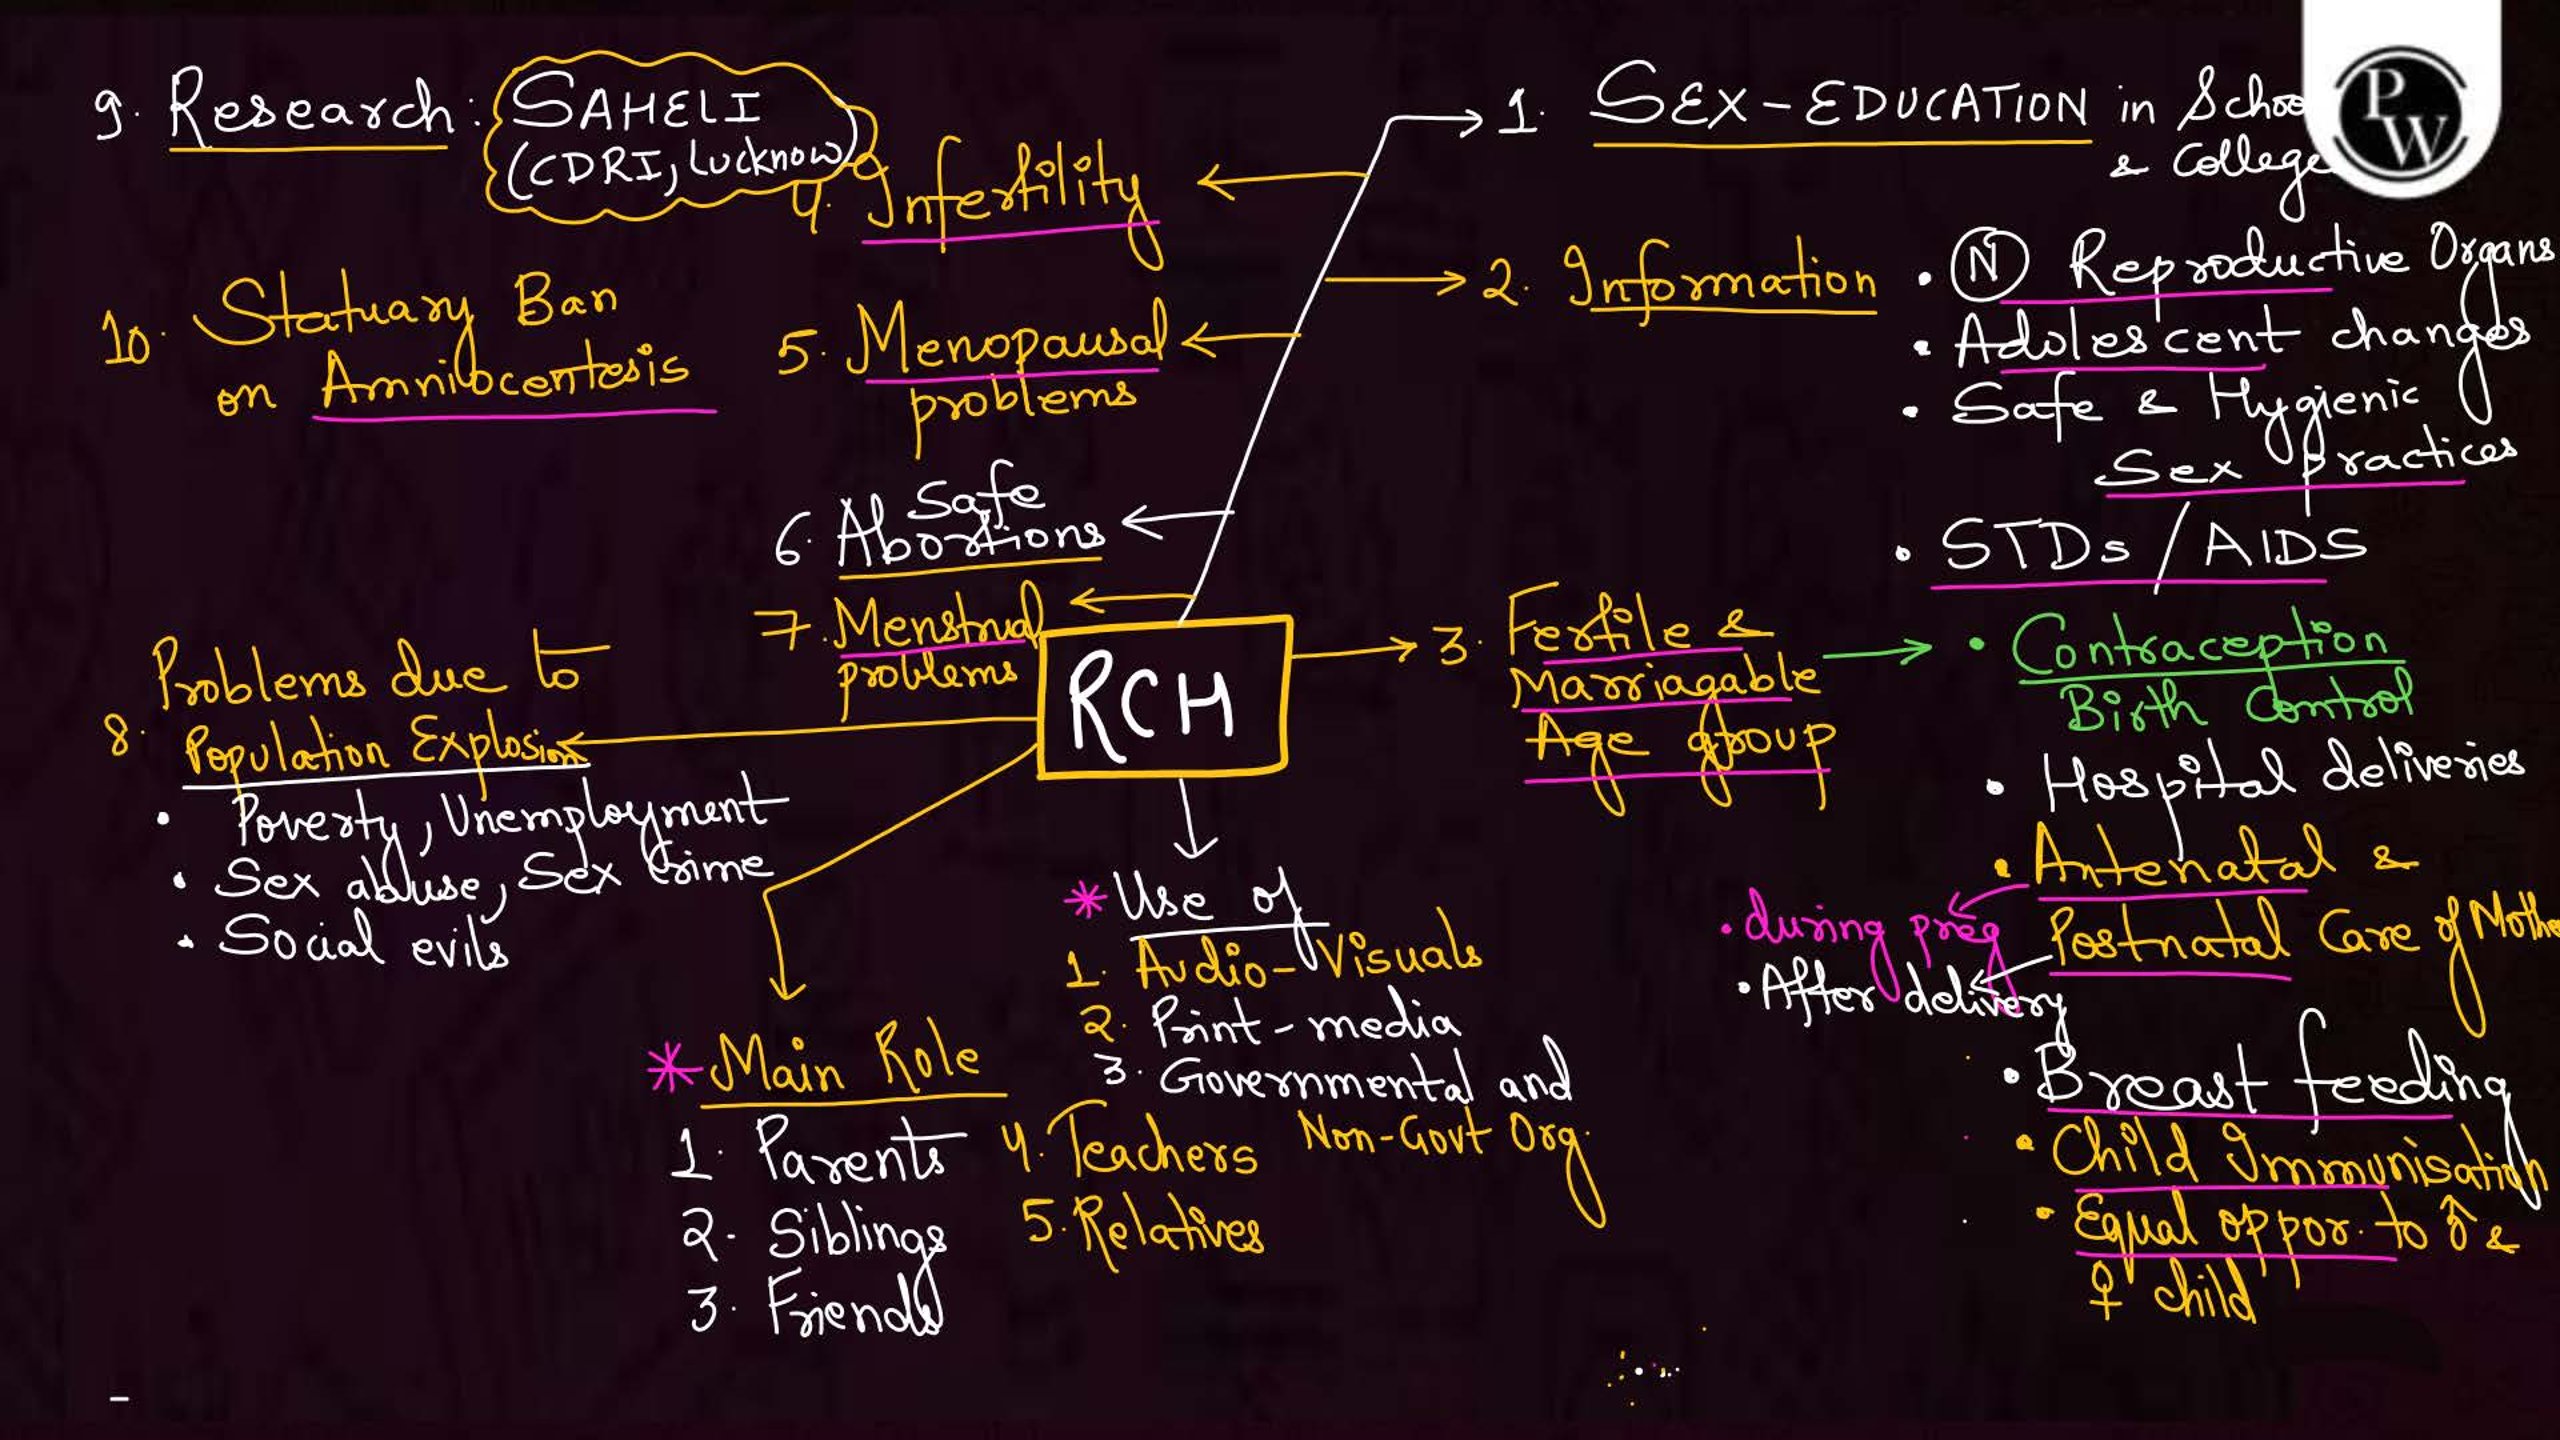 9. Research: SAHELI
(CDRI, Lucknow)
10. Statuary Ban
on Amniocentesis
4. Infertility
5. Menopausal
problems
6. Safe
Abortions
7. Menstrual
problems
RCH
1. SEX-EDUCATION in Schoo
& College
2. Information
• N Reproductive Organs
• Adolescent changes
• Safe & Hygienic
Sex practices
• STDs / AIDS
3. Fertile &
Marriagable
Age group
• Contraception
Birth Control
• Hospital deliveries
• Antenatal &
Postnatal Care of Mothe
• during preg
• After delivery
• Breast feeding
• Child Immunisation
• Equal oppor. to ♂ &
♀ child
8. Problems due to
Population Explosion
• Poverty, Unemployment
• Sex abuse, Sex Crime
• Social evils
* Main Role
1. Parents
2. Siblings
3. Friends
4. Teachers
5. Relatives
* Use of
1. Audio-Visuals
2. Print-media
3. Governmental and
Non-Govt Org.
PW